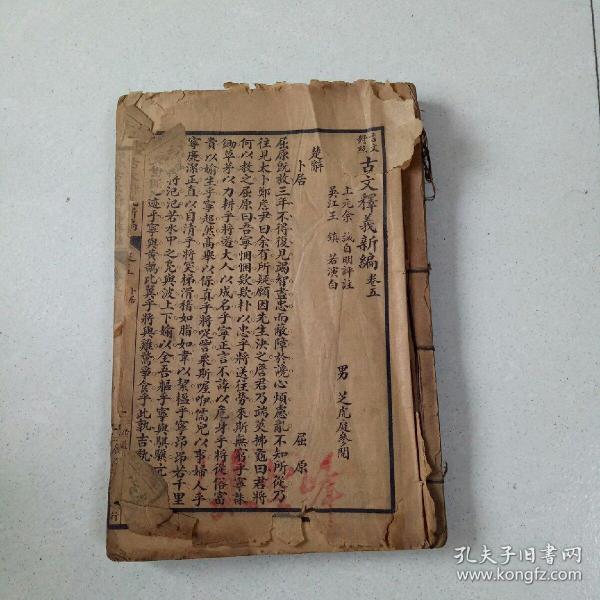 古文釋義新編 卷五
上元余 誠自明評註
吳江王 鎮若演白
男 芝虎庭參閱
楚辭
卜居
屈原
屈原既放三年不得復見竭智盡忠而蔽障於讒心煩慮亂不知所從乃
往見太卜鄭詹尹曰余有所疑願因先生決之詹尹乃端筴拂龜曰君將
何以教之屈原曰吾寧悃悃款款朴以忠乎將送往勞來斯無窮乎寧誅
鋤草茅以力耕乎將遊大人以成名乎寧正言不諱以危身乎將從俗富
貴以媮生乎寧超然高舉以保真乎將從訾栗斯喔咿儒兒以事婦人乎
寧廉潔正直以自清乎將突梯滑稽如脂如韋以絜楹乎寧昂昂若千里
將泛泛若水中之鳧與波上下媮以全吾軀乎寧與騏驥亢
迹乎寧與黃鵠比翼乎將與雞鶩爭食乎此孰吉孰
卜居
孔夫子旧書网
www.kongfz.com